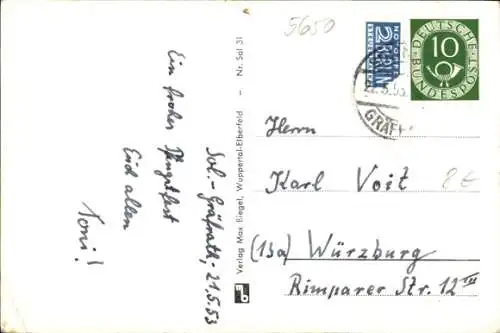 5650
NOTOPFER
2 BERLIN
STEUERMARKE
DEUTSCHE
10
BUNDESPOST
22.5.53
GRÄF
Sol.-Gräfrath, 21.5.53
Ein frohes Pfingstfest
Euch allen
Toni!
Verlag Max Biegel, Wuppertal-Elberfeld – Nr. Sol 31
Herrn
Karl Voit
8€
(13a) Würzburg
Rimparer Str. 12 III